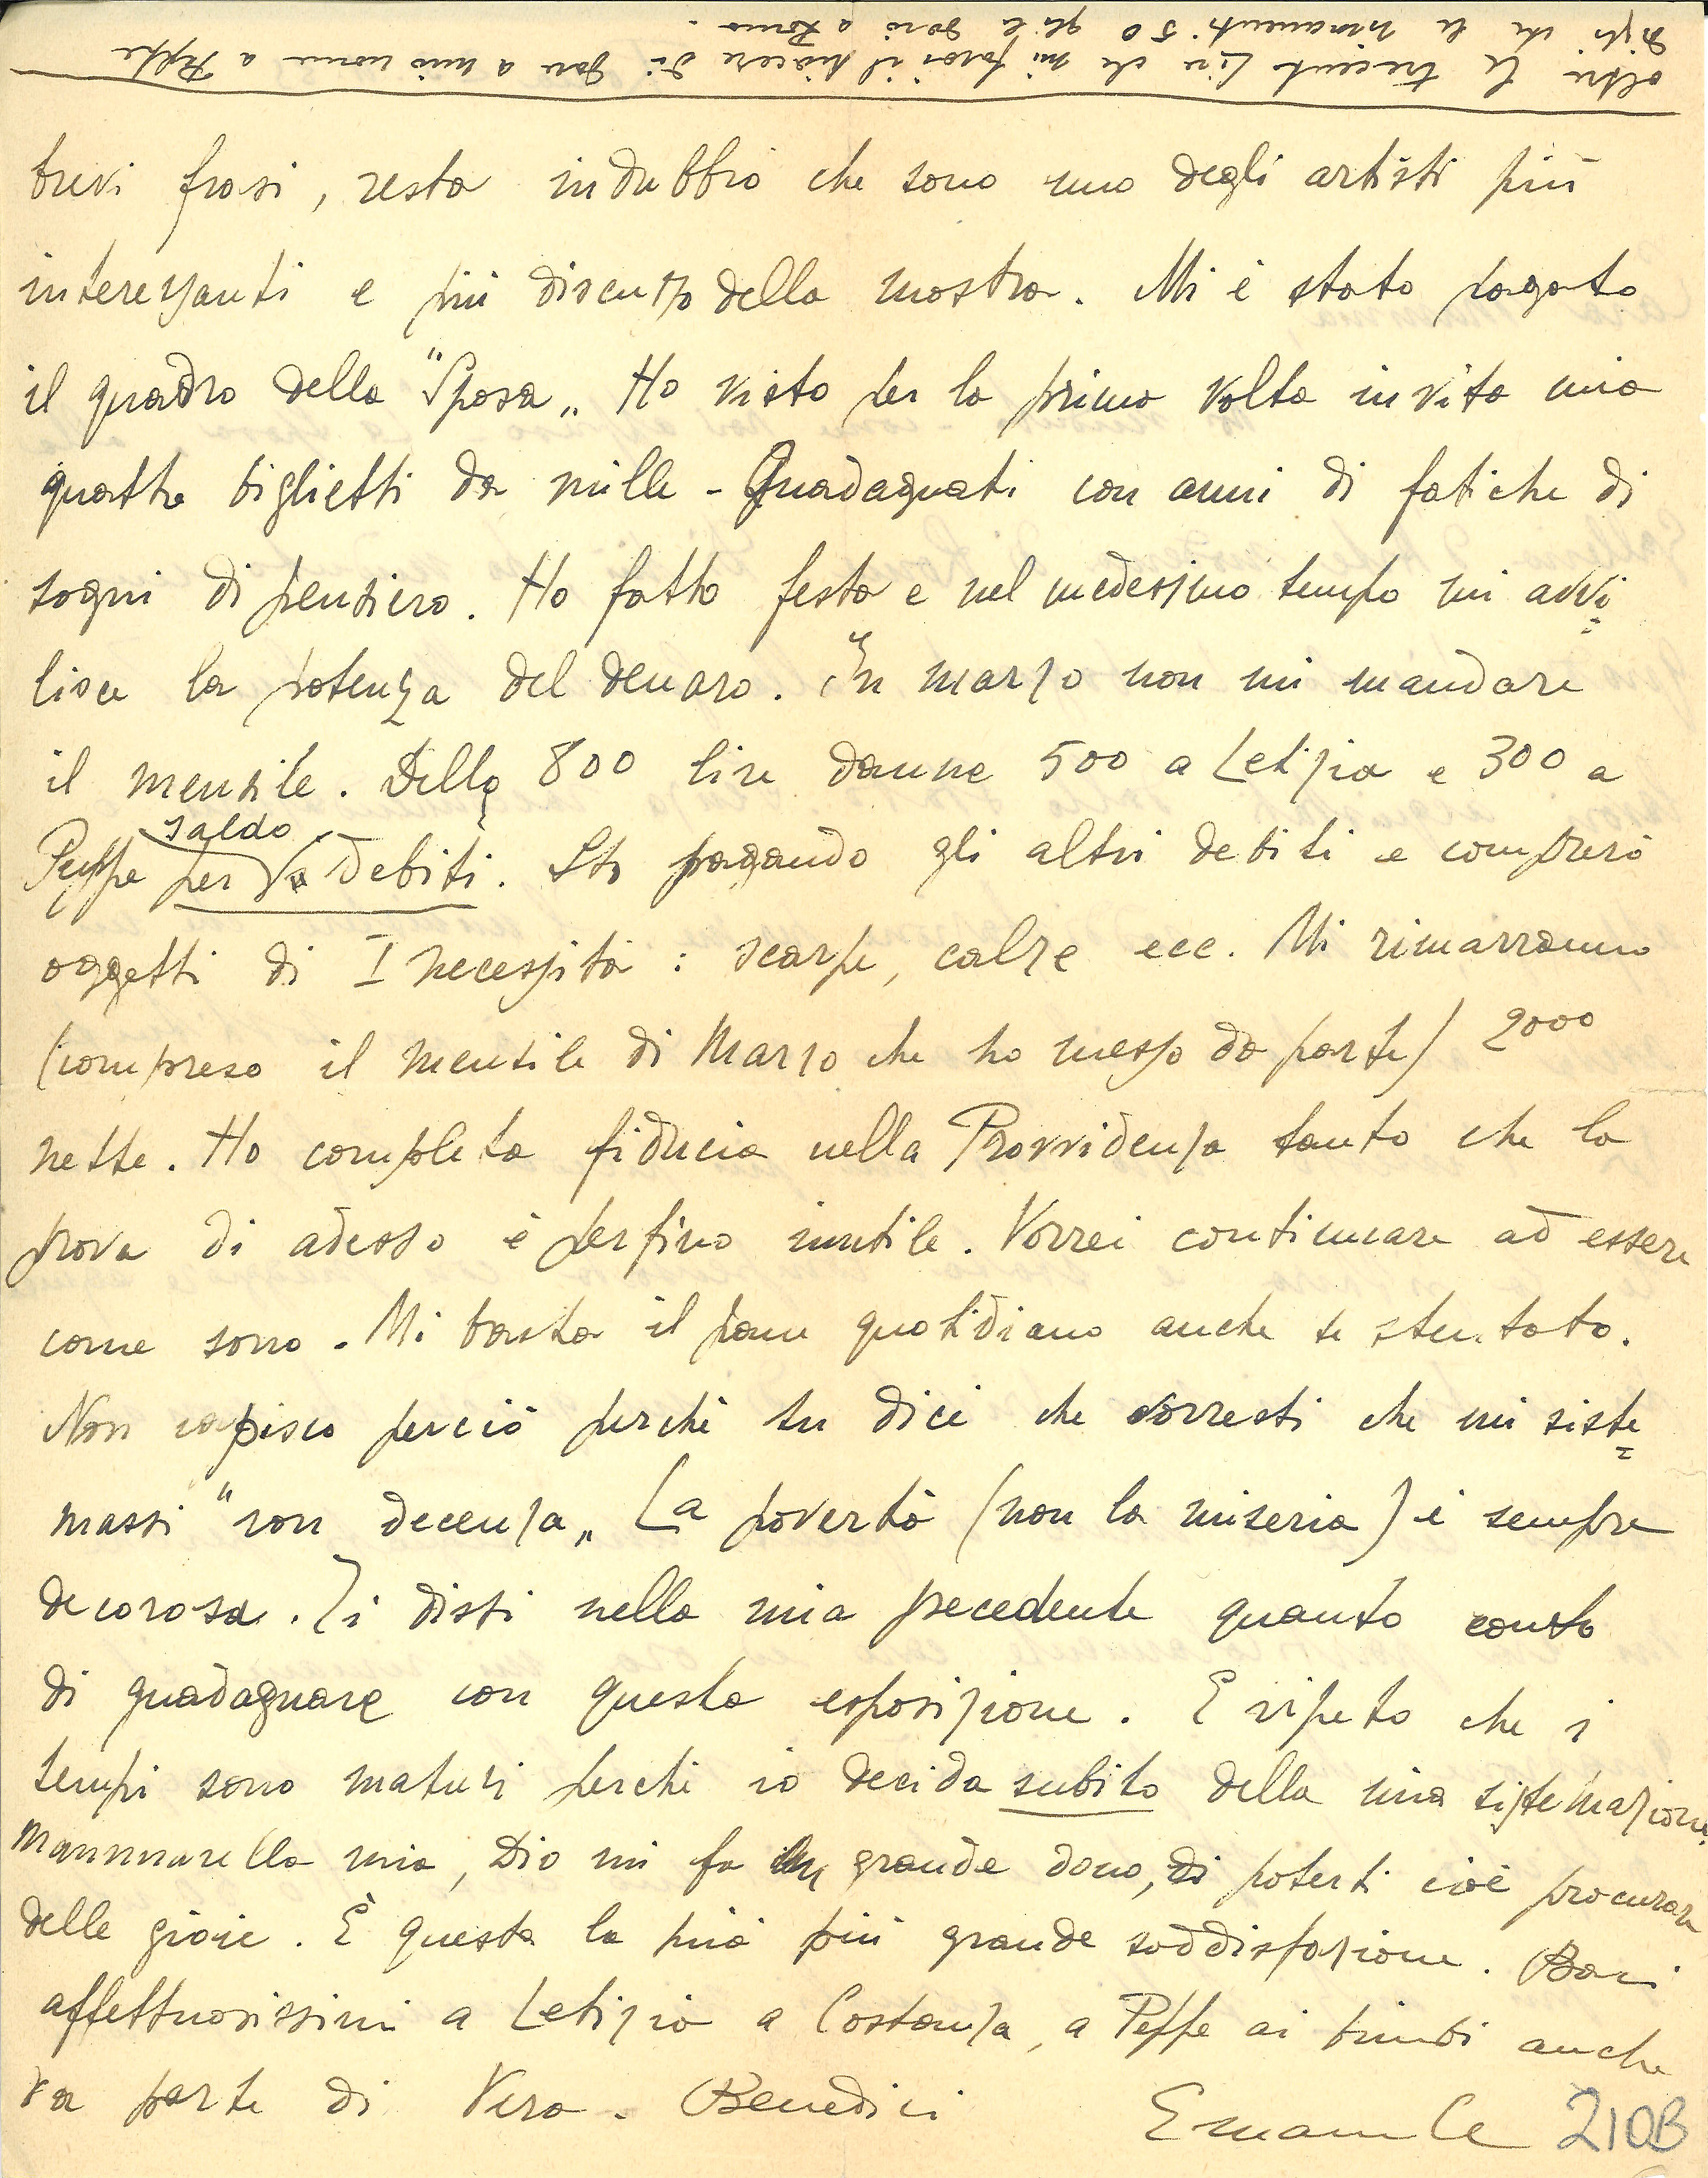 oltre le trecento lire che mi farai il piacere di dare a mio nome a Peppe
Digli che le rimanenti 50 gliele darò a Roma.
brevi frasi, resta indubbio che sono uno degli artisti più
interessanti e più discusso della mostra. Mi è stato pagato
il quadro della "Sposa„ Ho visto per la prima volta in vita mia
quattro biglietti da mille - Guadagnati con anni di fatiche di
sogni di pensiero. Ho fatto festa e nel medesimo tempo mi avvi=
lisce la potenza del denaro. In marzo non mi mandare
il mensile. Delle 800 lire danne 500 a Letizia e 300 a
Peppe per saldo debiti. Sto pagando gli altri debiti e comprerò
oggetti di I necessità: scarpe, calze ecc. Mi rimarranno
(compreso il mensile di Marzo che ho messo da parte) 2000
nette. Ho completa fiducia nella Provvidenza tanto che la
prova di adesso è perfino inutile. Vorrei continuare ad essere
come sono. Mi basta il pane quotidiano anche se stentato.
Non capisco perciò perchè tu dici che vorresti che mi siste=
massi "con decenza„ La povertà (non la miseria) è sempre
decorosa. Ti dissi nella mia precedente quanto conto
di guadagnare con questa esposizione. E ripeto che i
tempi sono maturi perchè io decida subito della mia sistemazione.
Mammarella mia, Dio mi fa un grande dono, di poterti cioè procurare
delle gioie. È questa la mia più grande soddisfazione. Baci
affettuosissimi a Letizia a Costanza, a Peppe ai bimbi anche
da parte di Vera. Benedici
Emanuele 210B